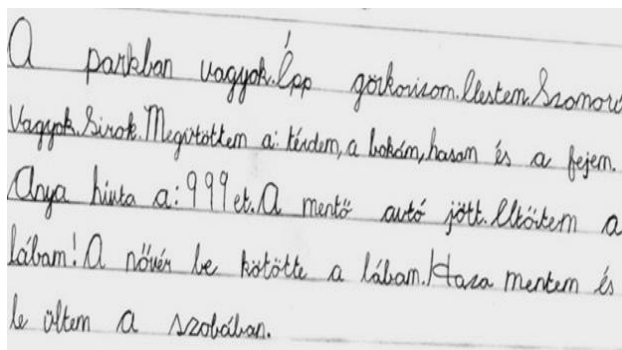 A parkban vagyok. Épp görkorizom. Elestem. Szomorú
vagyok. Sirok. Megütöttem a: térdem, a bokám, hasam és a fejem.
Anya hivta a: 999 et. A mentő autó jött. Eltöritem a
lábam! A nővér be kötötte a lábam. Haza mentem és
le ültem a szobában.